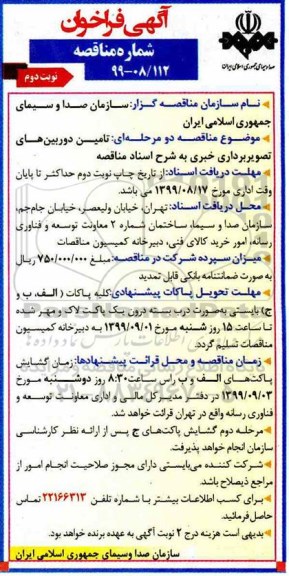 آگهی فراخوان
شماره مناقصه
۹۹-۰۸/۱۱۲
صدا و سیمای جمهوری اسلامی ایران
نوبت دوم
نـام سـازمان مناقصـه گـزار: سـازمان صـدا و سـیمای
جمهوری اسلامی ایران
موضـوع مناقصـه دو مرحلـه‌ای: تامیـن دوربین‌هـای
تصویربرداری خبری به شرح اسناد مناقصه
مهلت دریافت اسناد: از تاریخ چاپ نوبت دوم حداکثر تا پایان
وقت اداری مورخ ۱۳۹۹/۰۸/۱۷ می باشد.
محل دریافت اسناد: تهران، خیابان ولیعصر، خیابان جام‌جم،
سازمان صدا و سیما، ساختمان شماره ۲ معاونت توسعه و فناوری
رسانه، امور خرید کالای فنی، دبیرخانه کمیسیون مناقصات
میزان سپرده شرکت در مناقصه: مبلغ ۷۵۰/۰۰۰/۰۰۰ ریال
به صورت ضمانتنامه بانکی قابل تمدید
مهلت تحویل پاکات پیشنهادی: کلیه پاکات ( الف، ب و
ج) بایستی به‌صورت درب بسته درون یک پاکت لاک و مهر شده
تا ساعت ۱۵ روز شنبه مورخ ۱۳۹۹/۰۹/۰۱ به دبیرخانه کمیسیون
مناقصات تسلیم گردد.
زمان مناقصه و محل قرائت پیشنهادها: زمان گشایش
پاکت‌های الف و ب از ساعت ۸:۳۰ روز دوشنبه مورخ
۱۳۹۹/۰۹/۰۳ در دفتر مدیرکل مالی و اداری معاونت توسعه و
فناوری رسانه واقع در تهران قرائت خواهد شد.
مرحله دوم گشایش پاکت‌های ج پس از ارائه نظر کارشناسی
سازمان انجام خواهد پذیرفت.
شرکت کننده می‌بایستی دارای مجوز صلاحیت انجام امور از
مراجع ذیصلاح باشد.
برای کسب اطلاعات بیشتر با شماره تلفن ۲۲۱۶۶۳۱۳ تماس
حاصل فرمائید.
بدیهی است هزینه درج ۲ نوبت آگهی به عهده برنده خواهد بود.
سازمان صدا وسیمای جمهوری اسلامی ایران